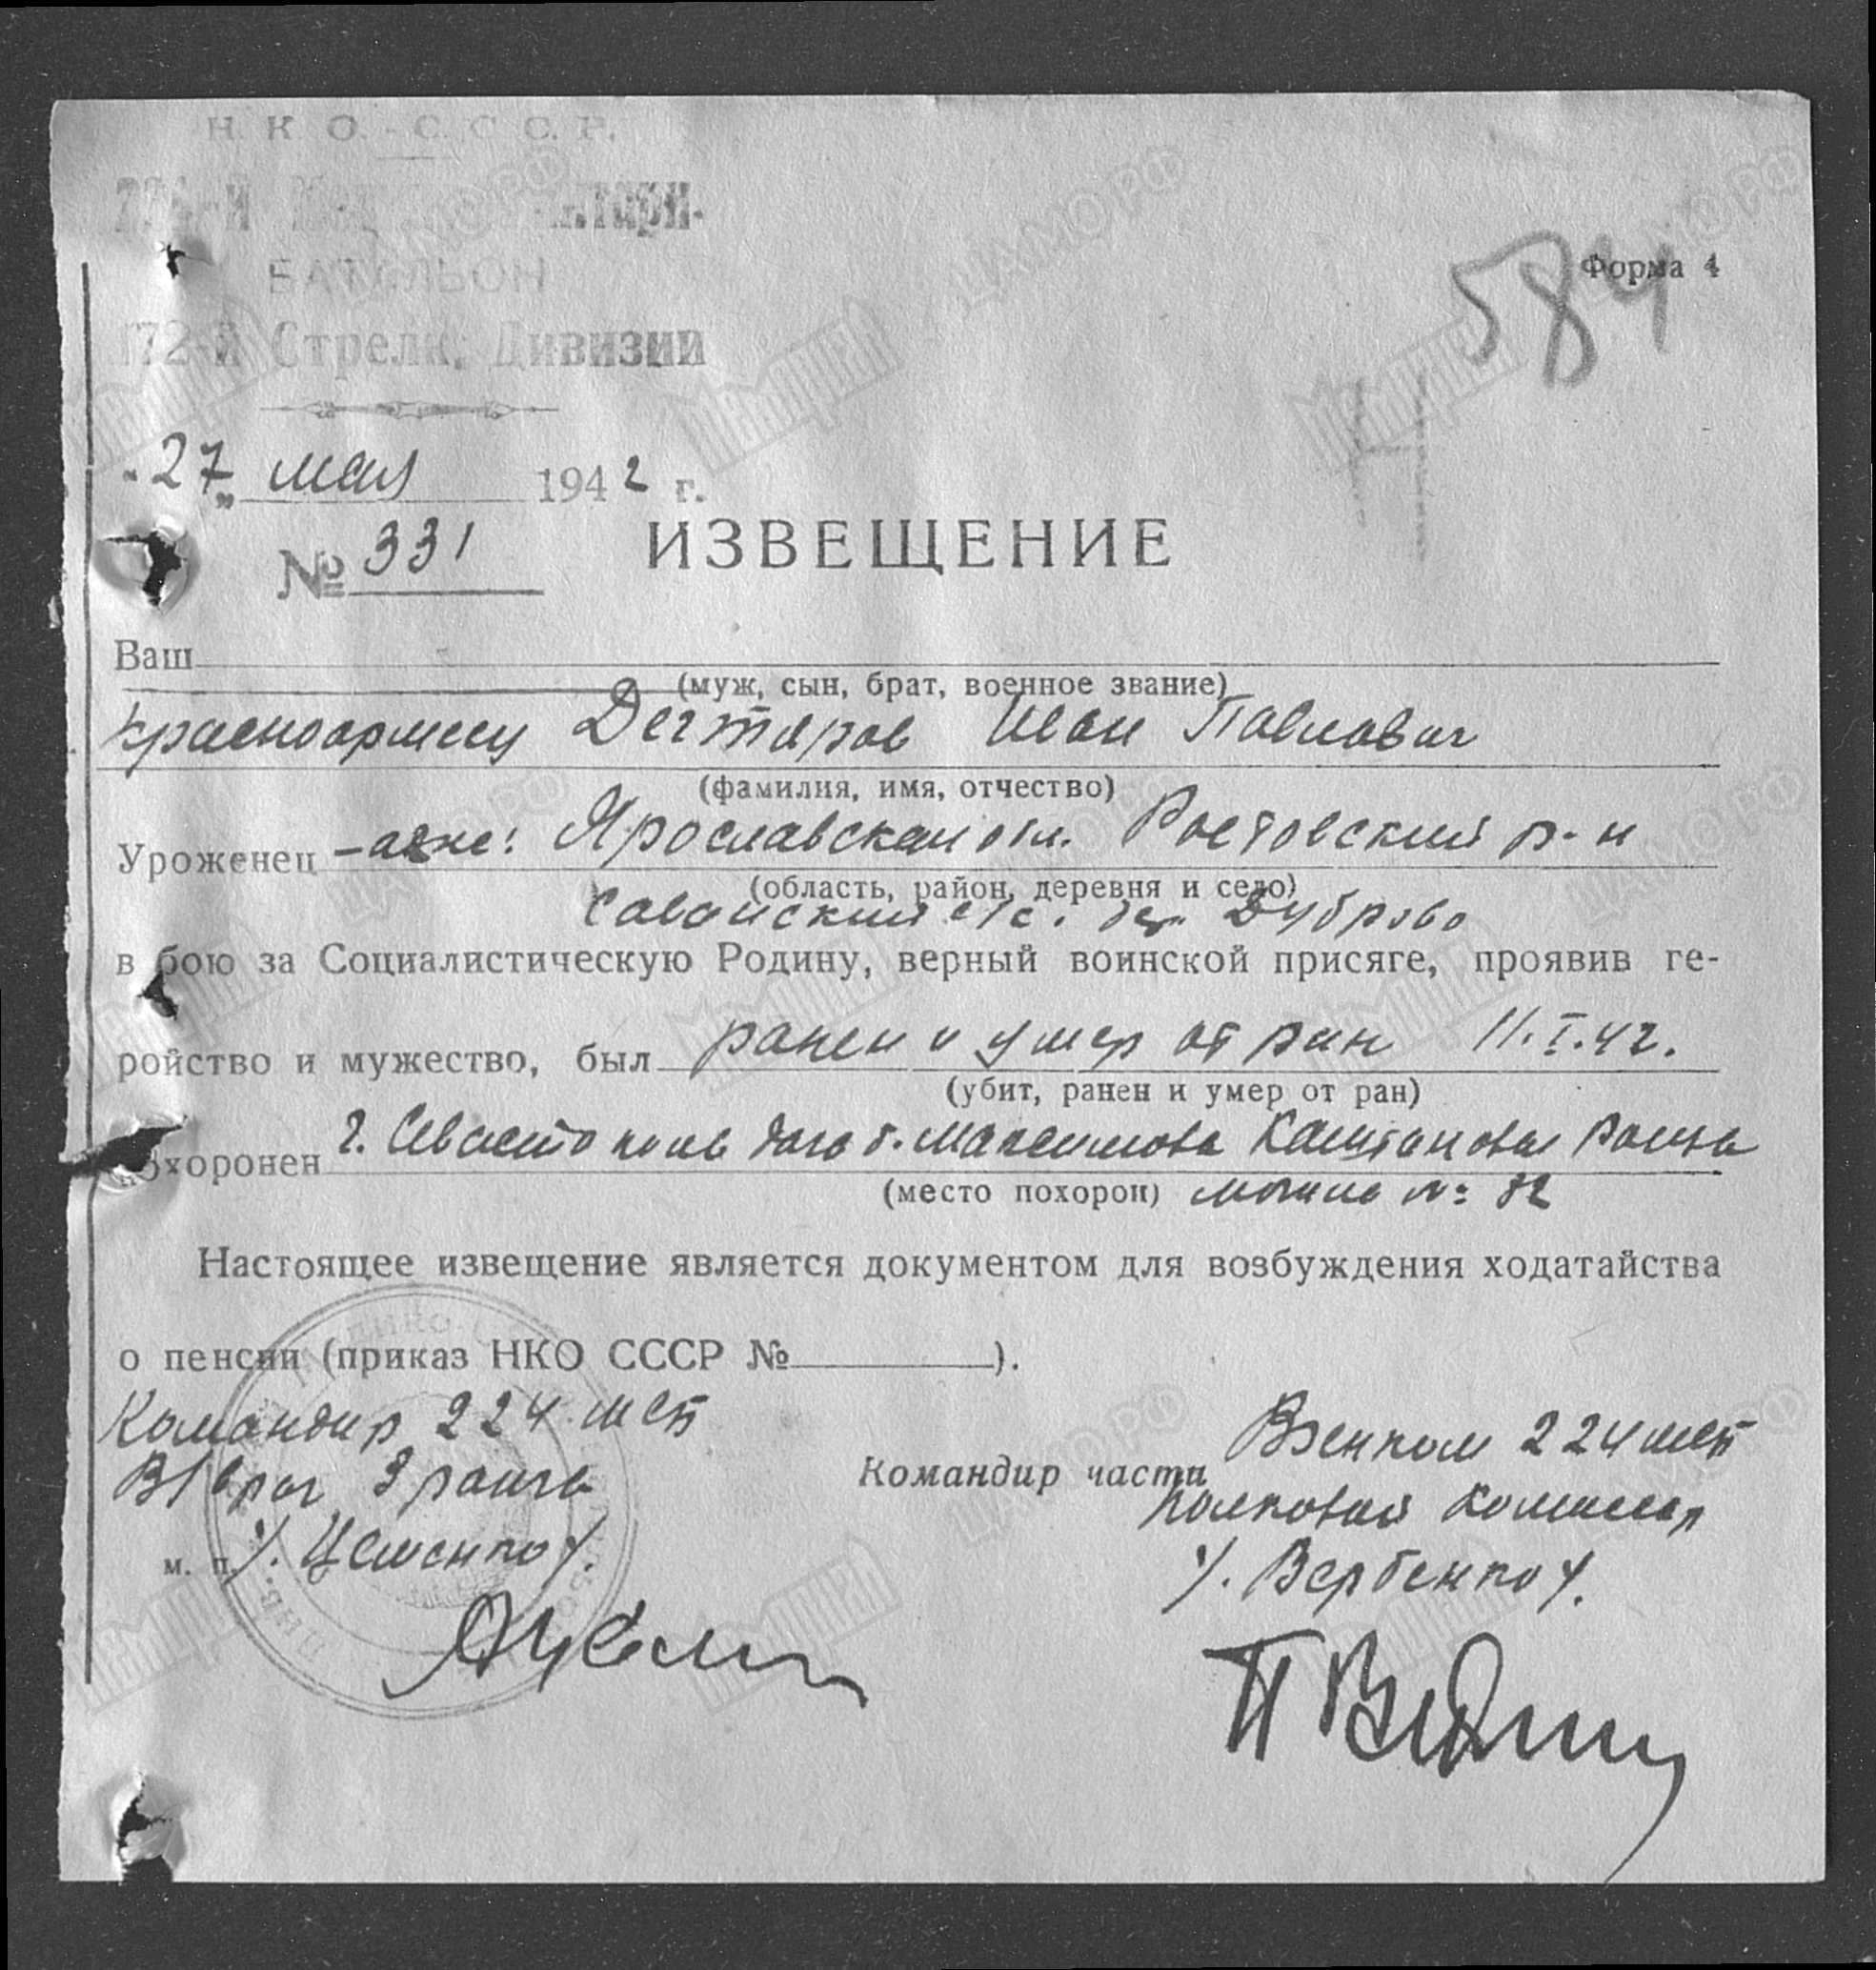 Н. К. О. - С. С. С. Р.
БАТАЛЬОН
172-й Стрелк. Дивизии
584
Форма 4
„27„ мая 1942 г.
№ 331
ИЗВЕЩЕНИЕ
Ваш
(муж, сын, брат, военное звание)
Красноармеец Дегтяров Иван Павлович
(фамилия, имя, отчество)
Уроженец Ярославская обл. Ростовский р-н
(область, район, деревня и село)
с/с. дер. Дуброво
в бою за Социалистическую Родину, верный воинской присяге, проявив ге-
ройство и мужество, был ранен и умер от ран 11.I.42.
(убит, ранен и умер от ран)
похоронен г. Севастополь дача б. Максимова Каштановая Роща
(место похорон) могила № 32
Настоящее извещение является документом для возбуждения ходатайства
о пенсии (приказ НКО СССР № ).
Командир 224 мсб
В/врач 3 ранга
м. п. /. Цеменко /.
Командир части
Военком 224 мсб
Полковой Комиссар
/. Вербенко /.